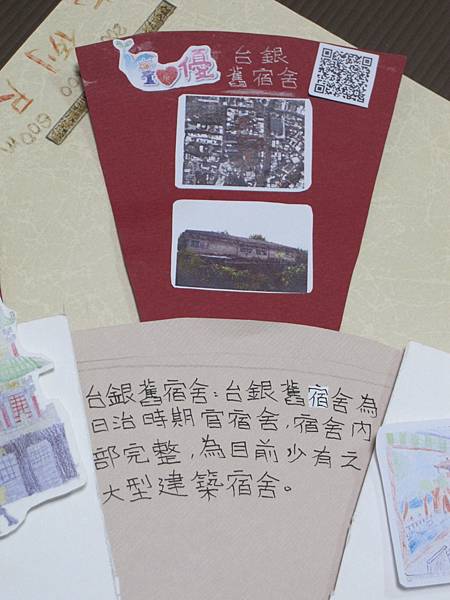 優
台銀
舊宿舍
台銀舊宿舍：台銀舊宿舍為
日治時期官宿舍，宿舍內
部完整，為目前少有之
大型建築宿舍。